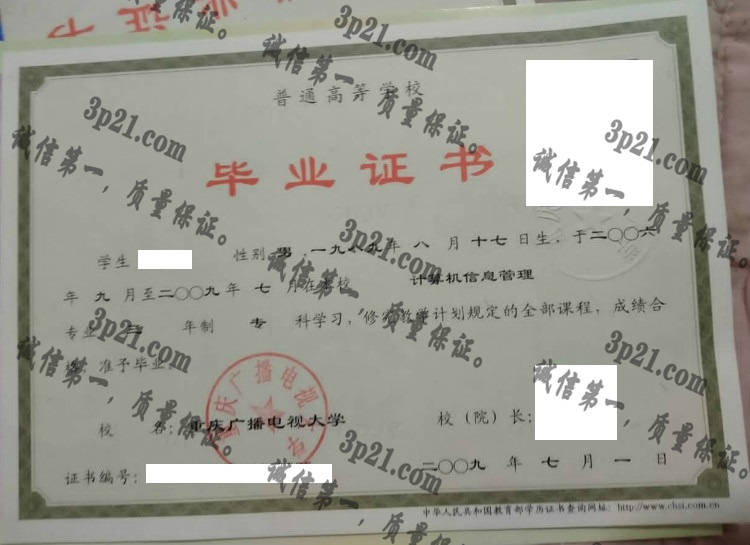 业证书
普通高等学校
毕业证书
学生 性别 男，一九八九年 八 月 十七 日生，于二〇〇六
年 九 月至二〇〇九年 七 月在本校 计算机信息管理
专业 三 年制 专 科学习，修完教学计划规定的全部课程，成绩合
格，准予毕业。
校 名：重庆广播电视大学 校（院）长：
重庆广播电视大学
二〇〇九 年 七 月 一 日
证书编号：
中华人民共和国教育部学历证书查询网址：http://www.chsi.com.cn
3p21.com
诚信第一，质量保证。
3p21.com
诚信第一，质量保证。
3p21.com
诚信第一，质量保证。
3p21.com
诚信第一，质量保证。
3p21.com
诚信第一，质量保证。
3p21.com
诚信第一，质量保证。
3p21.com
诚信第一，质量保证。